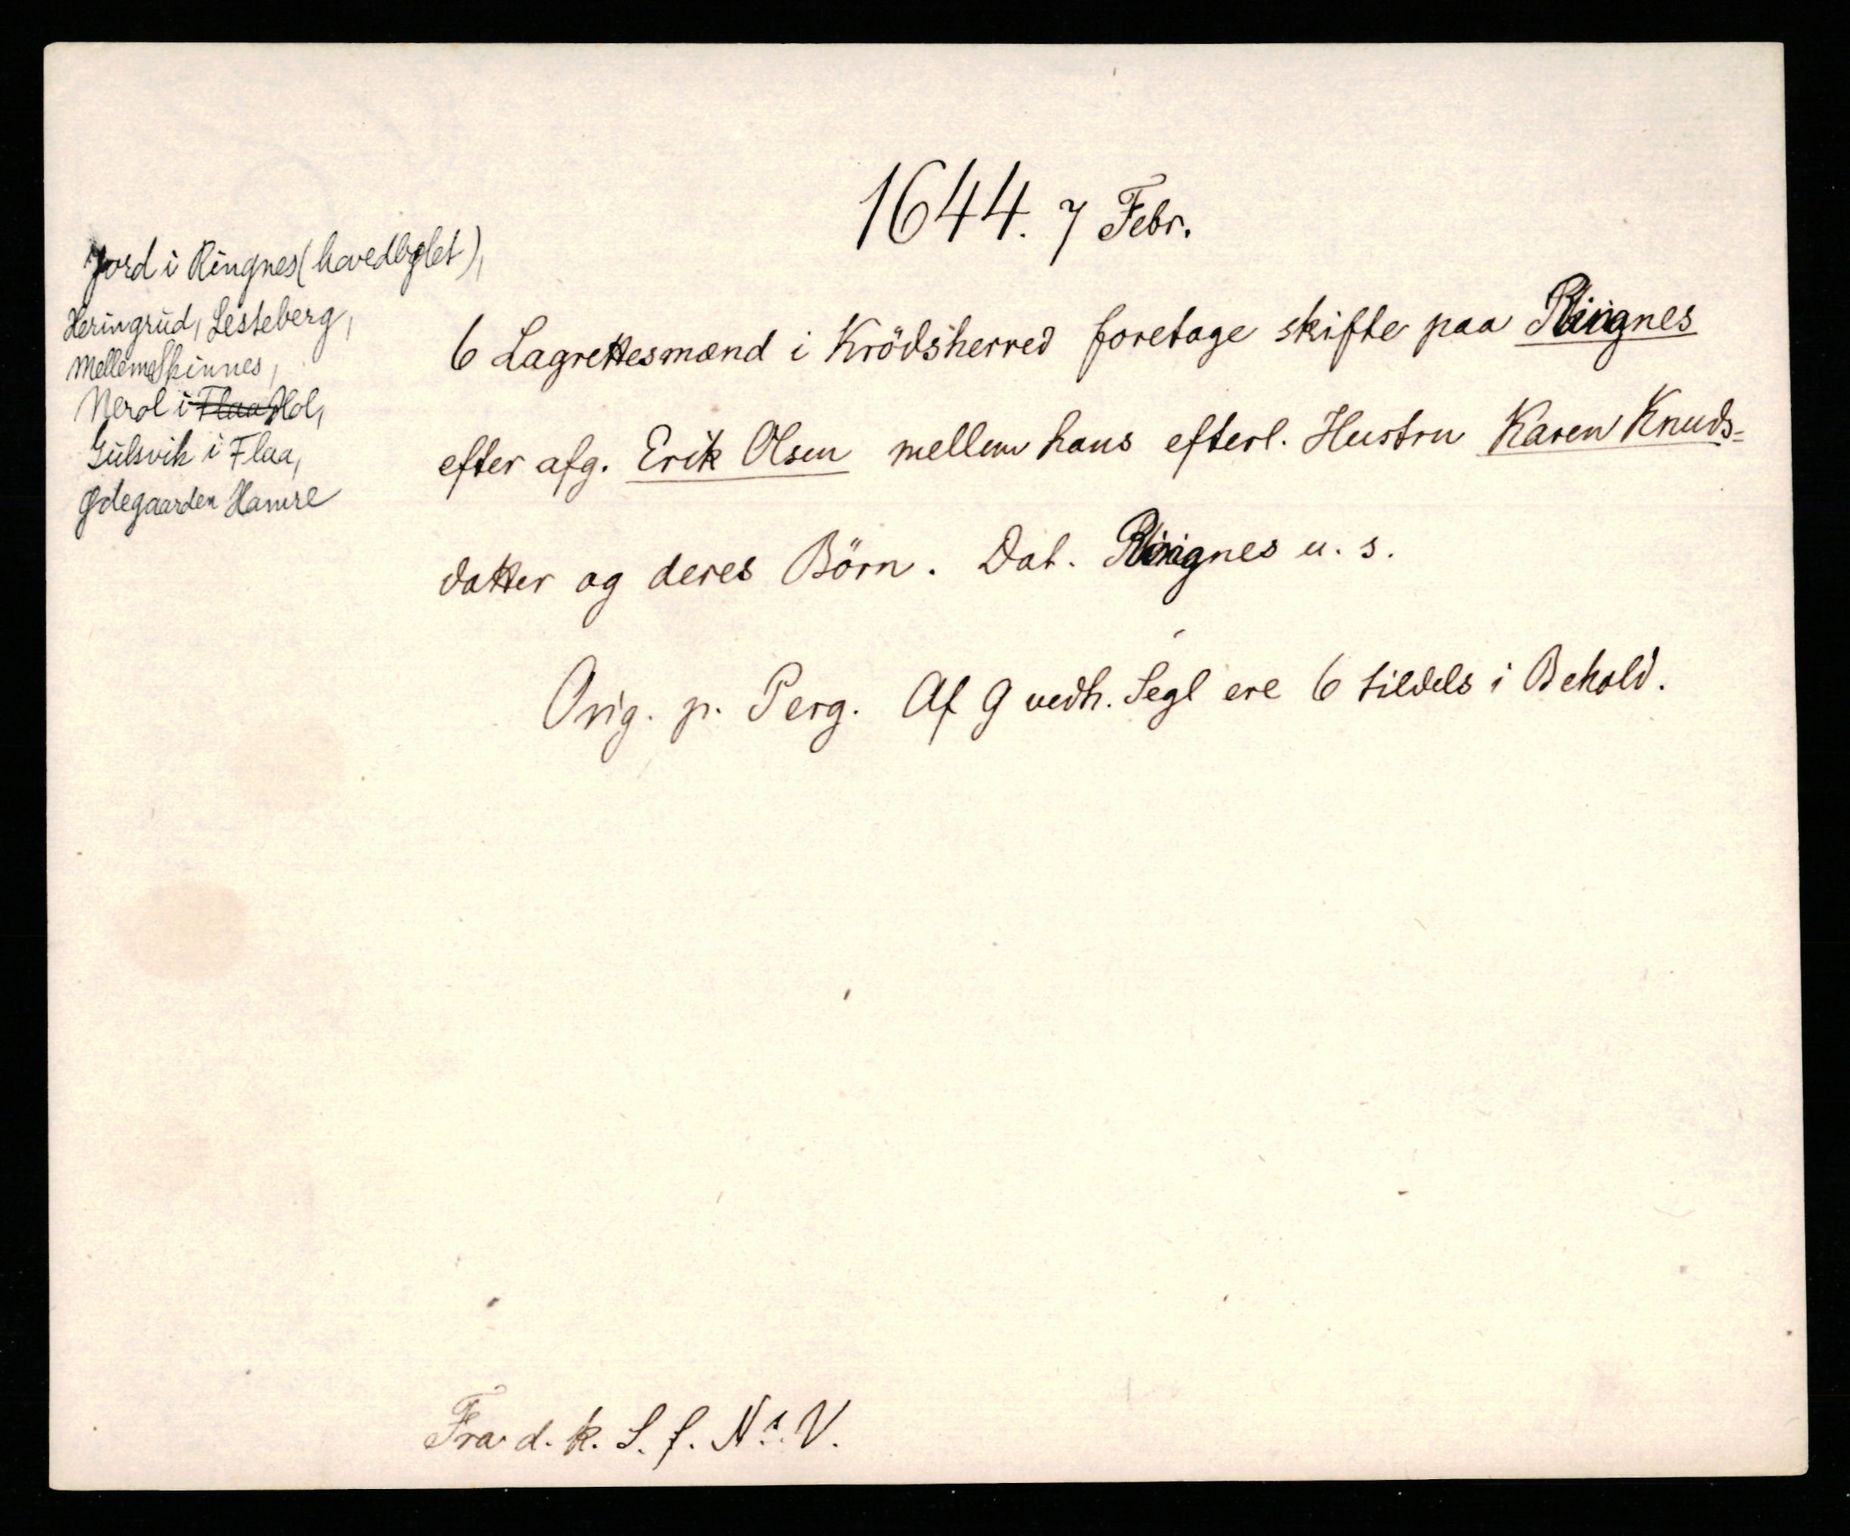 1644. 7 Febr.
Jord i Ringnes (hovedbølet),
Heringrud, Lesteberg,
Mellem Skinnes,
Nerol i Flaa Hol,
Gulsvik i Flaa,
Ødegaarden Hamre
6 Lagrettesmænd i Krödsherred foretage skifte paa Ringnes
efter afg. Erik Olsen mellem hans efterl. Hustru Karen Knuds=
datter og deres Börn. Dat. Ringnes u. s.
Orig. p. Perg. Af 9 vedh. Segl ere 6 tildels i Behold.
Fra d. k. S. f. N. V.